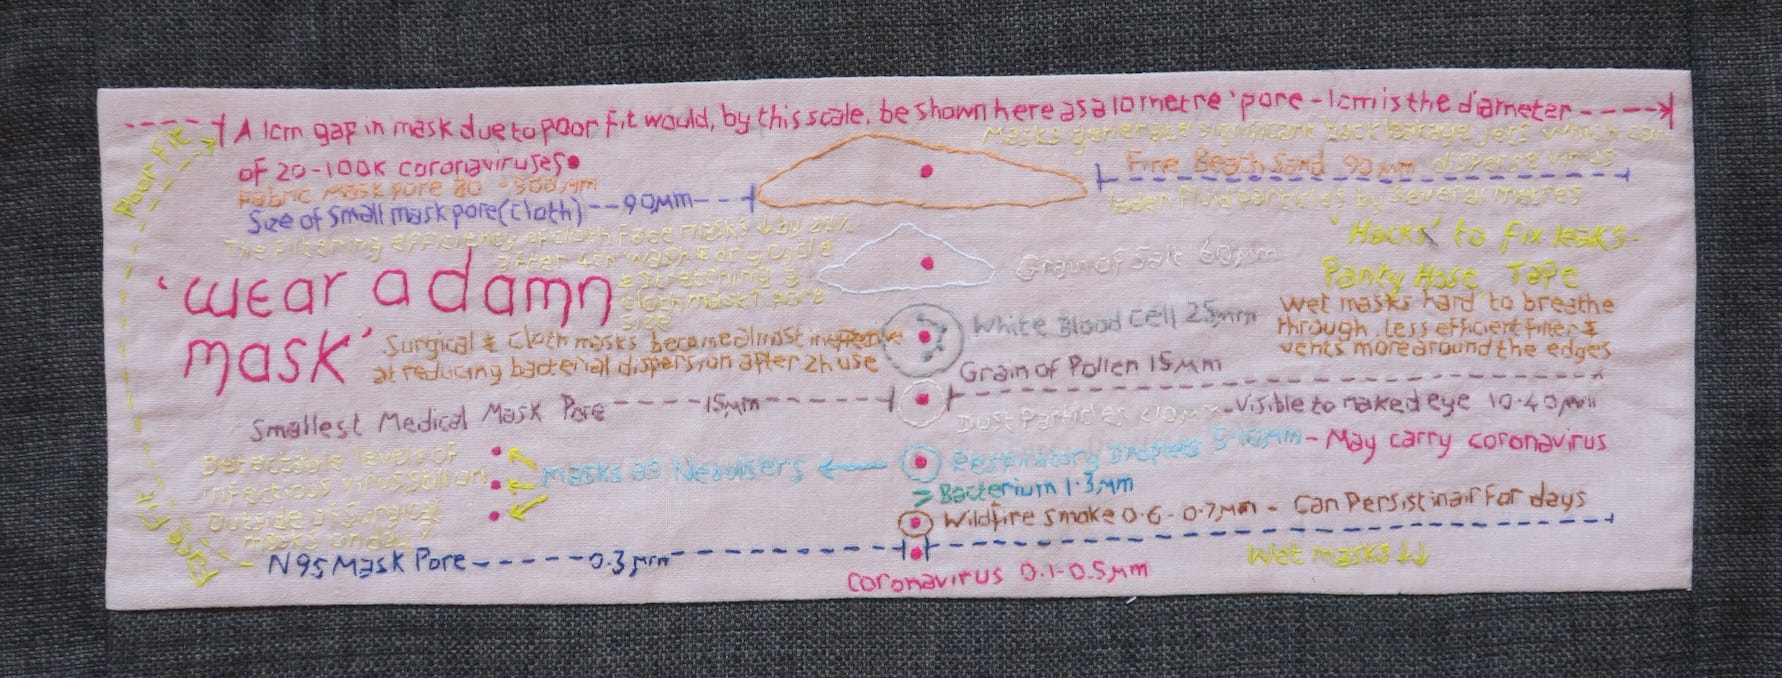 A 1cm gap in mask due to poor fit would, by this scale, be shown here as a 10metre 'pore - 1cm is the diameter
of 20-100K coronaviruses
Masks generate significant back leakage jets which can
disperse virus
laden fluid particles by several metres
Poor Fit
Fabric Mask pore 80 - 500μm
Fine Beach Sand 90μm
Size of small mask pore (cloth) 90μm
The filtering efficiency of cloth face masks ↓ by 20%
after 4th wash & dry cycle
& stretching a
cloth mask ↑ pore
size
'Hacks' to fix leaks-
Panty Hose Tape
Grain of Salt 60μm
'wear a damn
mask'
White Blood Cell 25μm
Wet masks hard to breathe
through, less efficient filter &
vents more around the edges
Surgical & Cloth masks become almost ineffective
at reducing bacterial dispersion after 2h use
Grain of Pollen 15μm
Smallest Medical Mask Pore 15μm
Dust Particles <10μm
-Visible to naked eye 10-40μm
Respiratory Droplets 5-10μm - May carry coronavirus
Masks as Nebulisers
Detectable levels of
infectious virus still on
Outside of Surgical
masks on day 7
> Bacterium 1·3μm
Wildfire smoke 0.6 - 0.7μm - Can Persist in air for days
Poor Fit
N95 Mask Pore 0.3μm
Wet masks ↓↓
Coronavirus 0.1-0.5μm